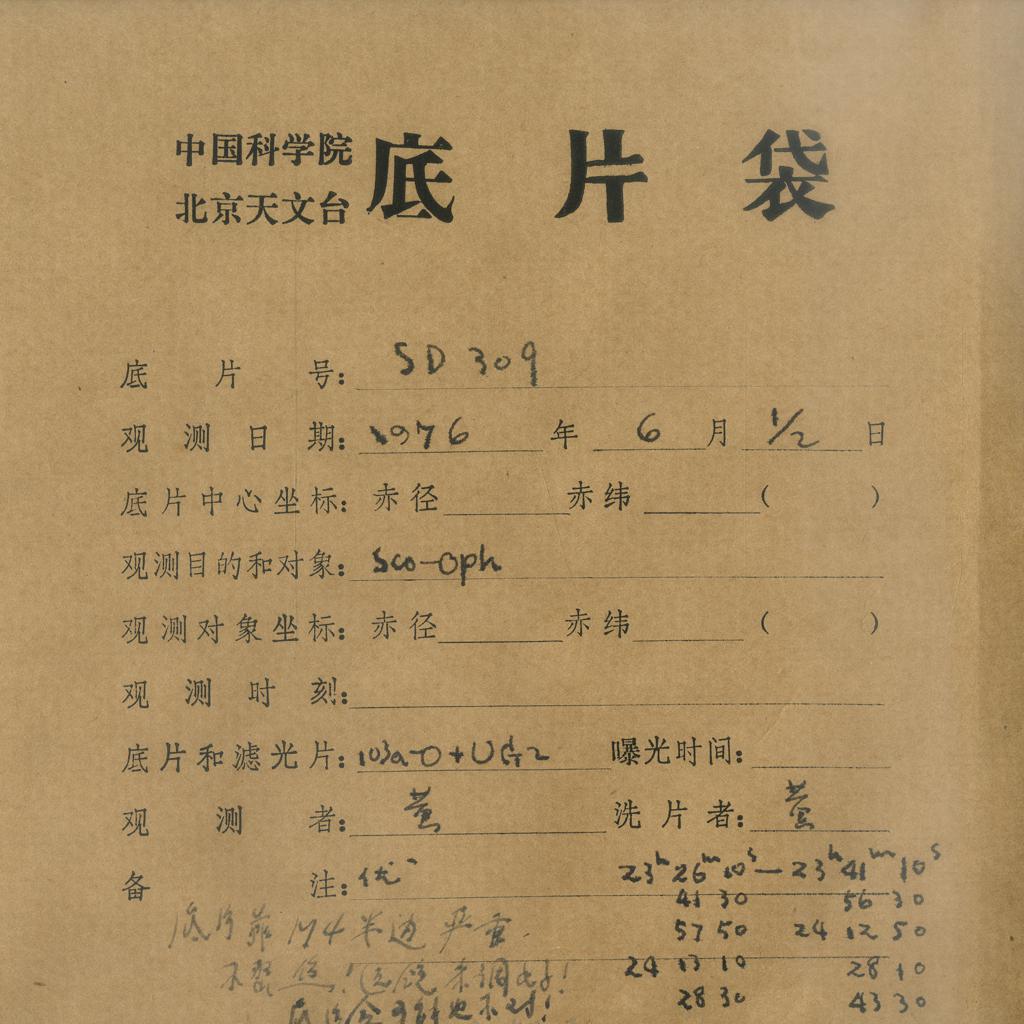 中国科学院
北京天文台
底片袋
底片号: SD 309
观测日期: 1976 年 6 月 1/2 日
底片中心坐标: 赤径 赤纬 ( )
观测目的和对象: Sco-Oph
观测对象坐标: 赤径 赤纬 ( )
观测时刻:
底片和滤光片: 103a-O + UG2 曝光时间:
观测者: 黄 洗片者: 黄
备注: 优 23h 26m 10s — 23h 41m 10s
41 30 56 30
底片靠 174 半边 严重 57 50 24 12 50
不 24 13 10 28 10
28 30 43 30